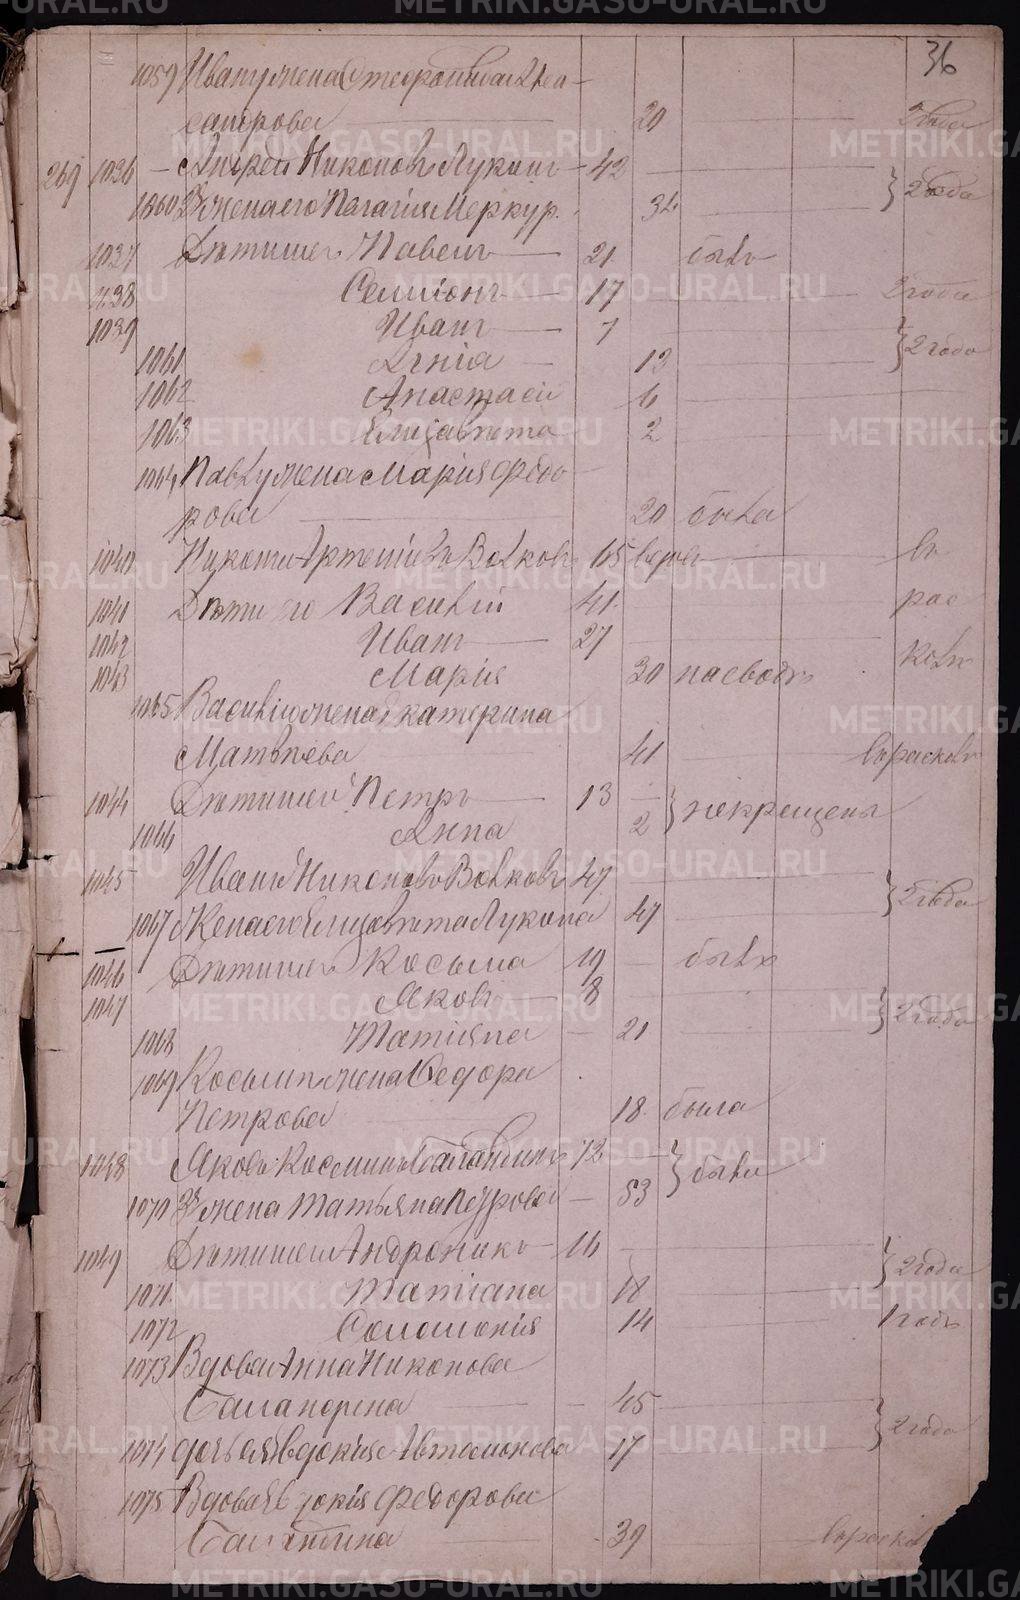 36
1059 Ивану жена
сандрова 20 2 года
269 1036 Андрей Никоновъ Лукинъ 42
1060 2я жена его Пелагия Меркур. 34 2 года
1037 Дети ихъ Павелъ 21 былъ
1038 Семионъ 17 2 года
1039 Иванъ 7
1061 Агнiа 13 2 года
1062 Анастасiи 6
1063 Елизавета 2
1064 Павлу жена Марiя Федо
рова 20 была
1040 Никита Артемiевъ Волковъ 65 вера въ
1041 Дети его Василiй 41 рас
1042 Иванъ 27
1043 Марiя 30 колъ
1065 Василiю жена Екатерина
Матвеева 41 въ расколе
1044 Дети ихъ Петръ 13
1066 Анна 2 некрещены
1045 Иванъ Никоновъ Волковъ 47
1067 Жена его Елизавета Лукина 47 2 года
1046 Дети ихъ Косьма 19 былъ
1047 Яковъ 8
1068 Татiяна 21 2 года
1069 Косьмы жена Федора
Петрова 18 была
1048 Яковъ Косминъ Баландинъ 72
1070 2я жена Татьяна Петрова 53 были
1049 Дети ихъ Андроникъ 16
1071 Татiана 18 2 года
1072 Соломонiя 14 1 годъ
1073 Вдова Анна Никонова
Баландина 45
1074 дочь ея Евдокiя Автамонова 17 2 года
1075 Вдова Евдокiя Федорова
Баландина 39 въ раскол
METRIKI.GASO-URAL.RU